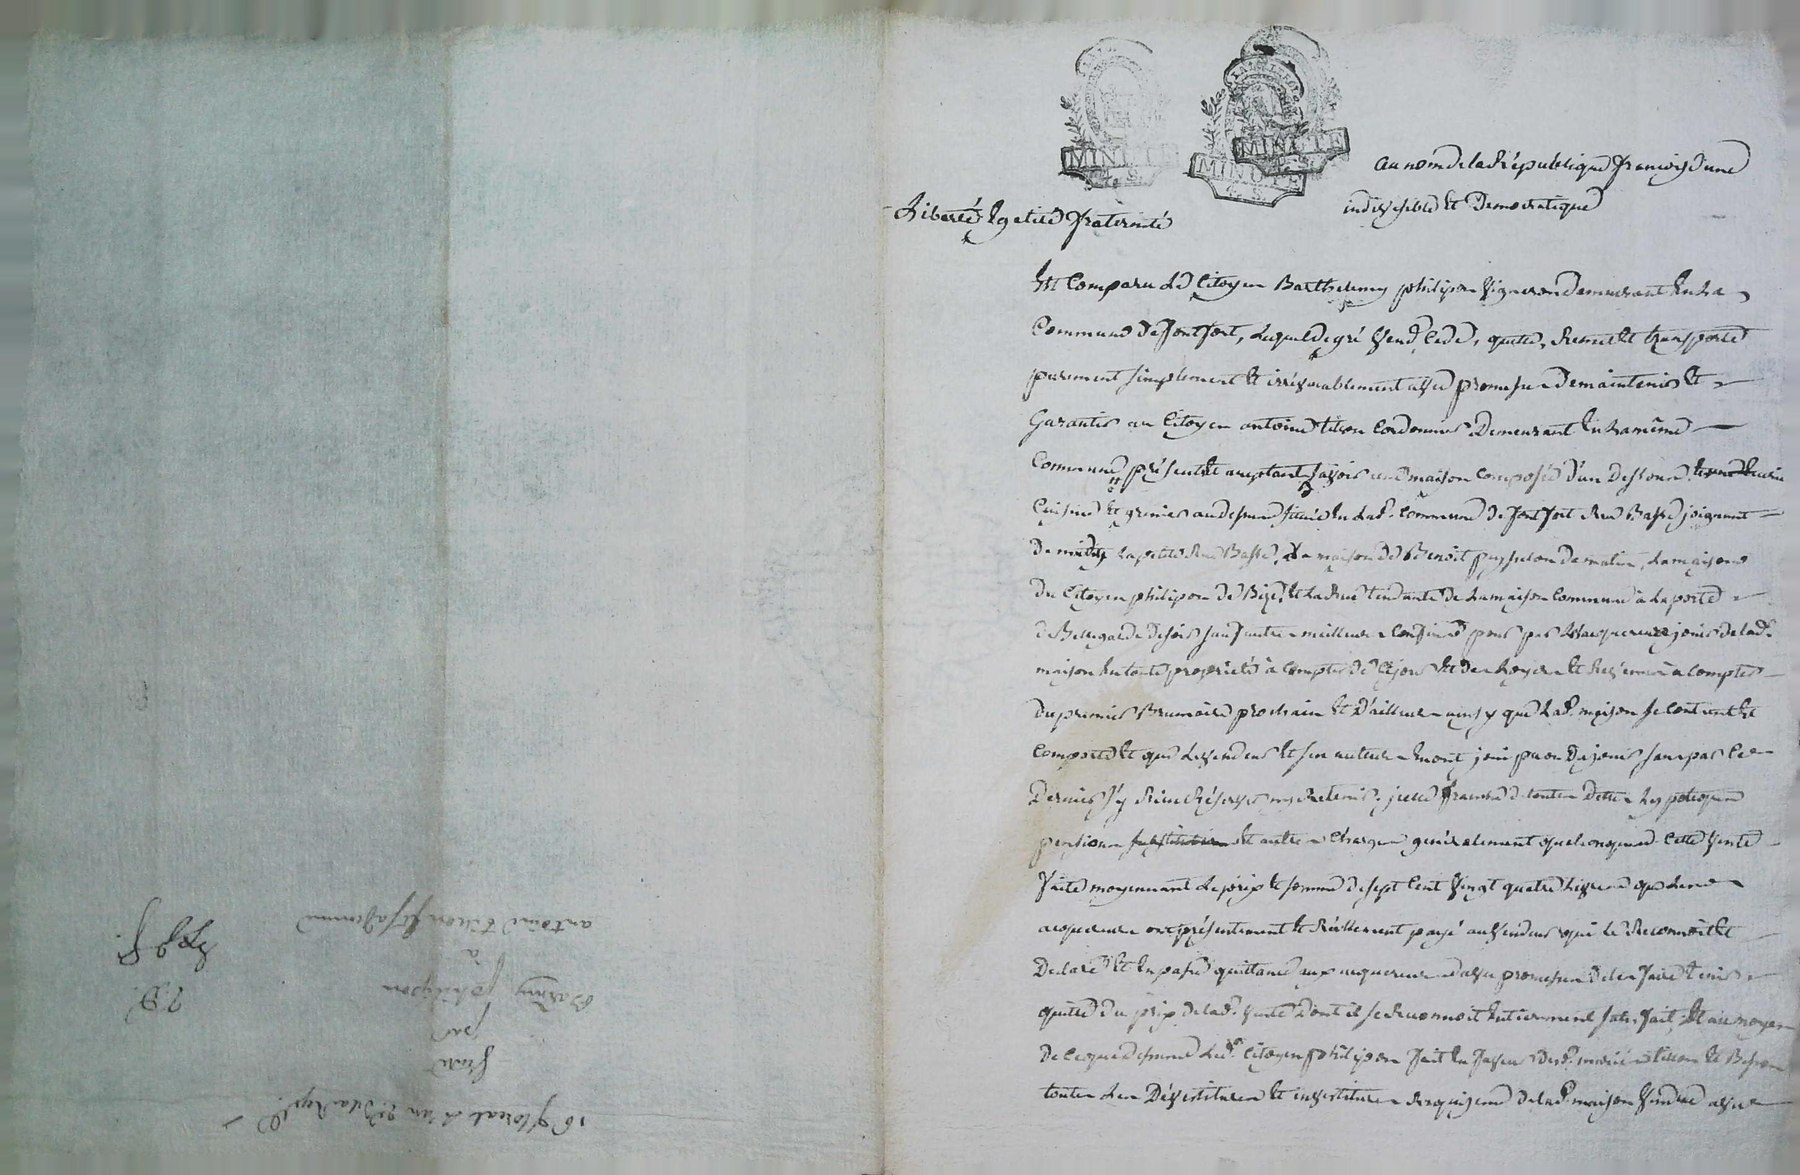 MINUTE
MINUTE
MINUTE
au nom de la République françoise une
indivisible et Démocratique
Liberté Egalité Fraternité
Est Comparu Le Citoyen Barthelemy philipon Vigneron demeurant En La
Commune de Fontfort, Lequel de gré Vend, Cede, quitte, Remet Et transporte
purement simplement Et irrévocablement avec promesse de maintenir Et
Garantir au Citoyen antoine tixon Cordonnier Demeurant En La même
Commune présent Et acceptant Savoir une maison Composée d'un Dessous
Cuisine Et grenier au dessus située En Lad. Commune de Fontfort Rue Basse joignant
La petite Rue Basse, La maison de Benoit de matin, La maison
du Citoyen philipon de Bize, Et La Rue tendante de La maison Commune à La porte
de Bellegarde de soir sauf autres meilleurs Confins pour par jouir de lad.
maison En toute propriété à Compter de Ce jour Et des Loyers à Compter
du premier Brumaire prochain Et D'ailleurs ainsy que Lad. maison Se Contient Et
Comporte Et que Le Vendeur Et ses auteurs En ont joui pu ou Du jouir sans par Ce
Dernier s'y Rien Réserver ny Retenir. quitte franche de toutes Dettes hypotheques
pensions Et autres Charges généralement quelconques. Cette Vente
faite moyennant Le prix Et somme de sept Cent Vingt quatre Livres que
acquereur présentement Et Réellement payé au Vendeur qui Le Reconnoit Et
Declare Et En passe quittance aux acquereurs avec promesse de Les faire tenir
quitte du prix de lad. Vente Dont il se Reconnoit Entierement satisfait, Et au moyen
de Ce que dessus Led. Citoyen philipon fait En faveur Desd. mariés tixon Et
toutes Les Dévestitures Et investitures Requises de lad. maison Vendue avec
16 floreal L'an 2.e de la Rep.
Vente
par
Barmy philipon
à
antoine tixon Et sa femme